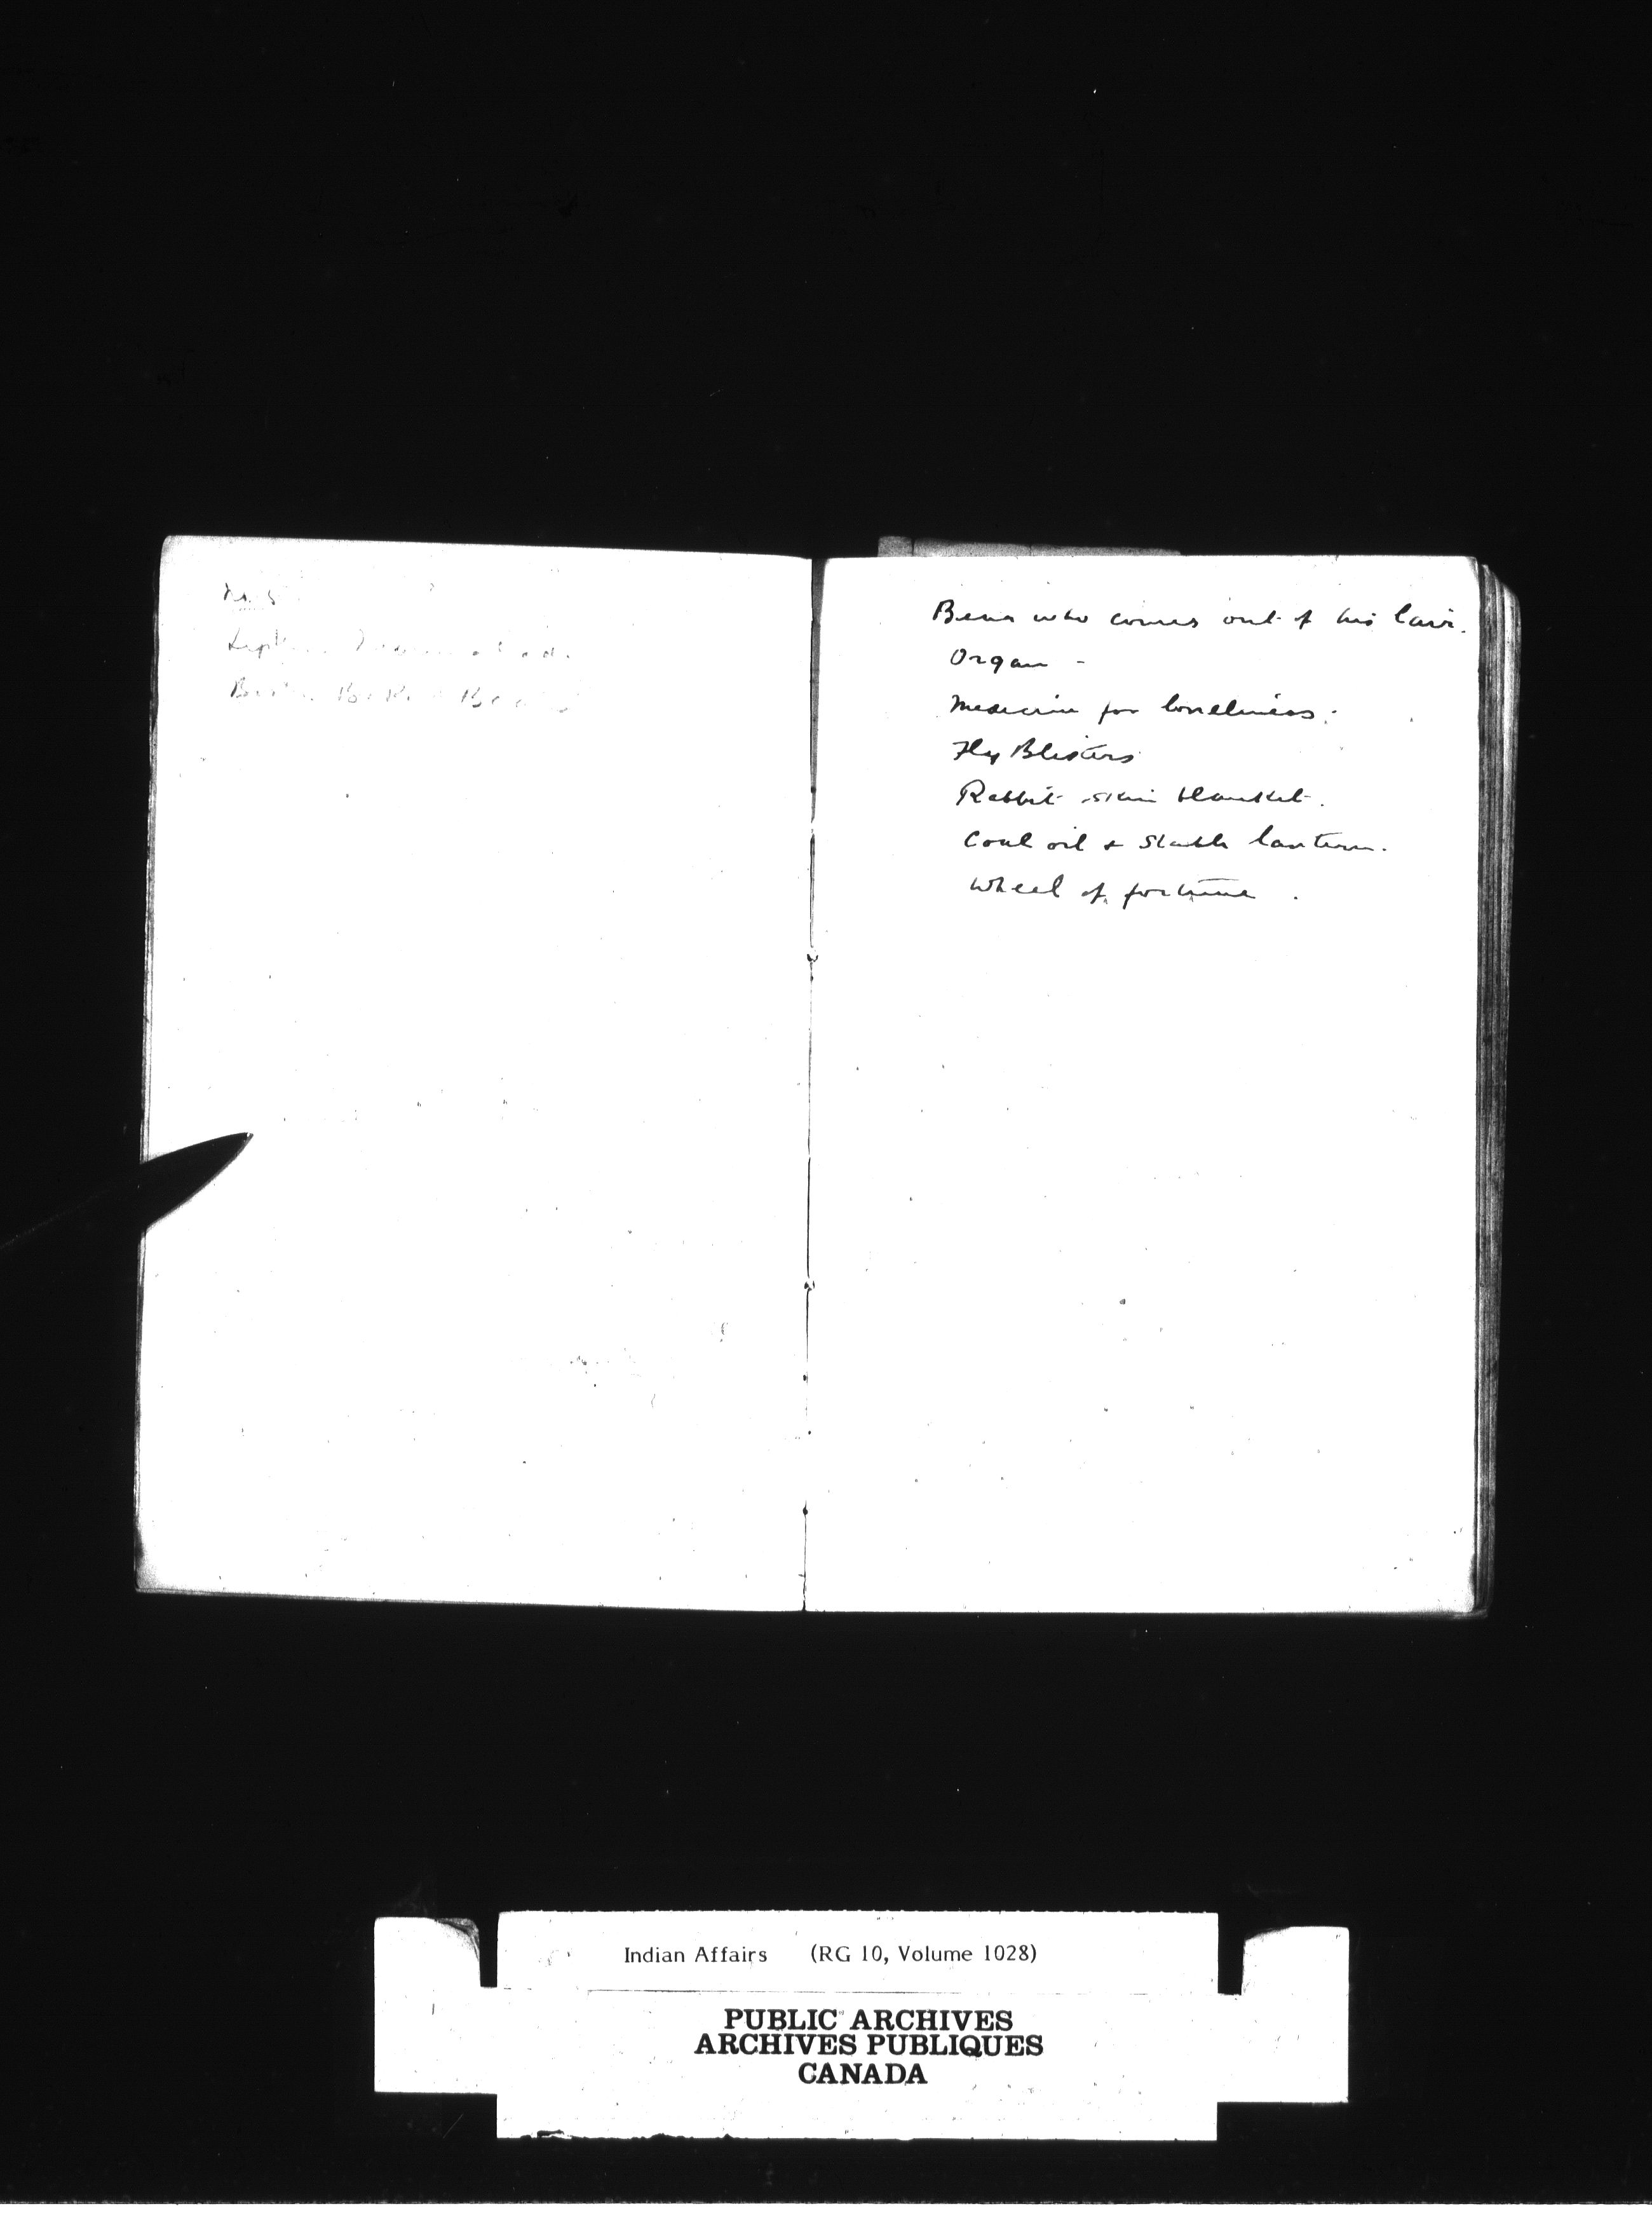 No. 5
Bear who comes out of his lair.
Organ -
Medicine for loneliness.
Fly Blisters
Rabbit skin blanket.
Coal oil & Stable lantern.
Wheel of fortune.
Indian Affairs (RG 10, Volume 1028)
PUBLIC ARCHIVES
ARCHIVES PUBLIQUES
CANADA